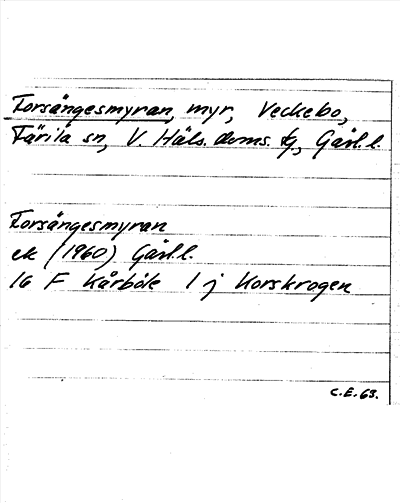 Forsängesmyran, myr, Veckebo,
Färila sn, V. Häls. doms. tg, Gävl. l.
Forsängesmyran
ek (1960) Gävl. l.
16 F Kårböle 1 j Korskrogen
C.E. 63.